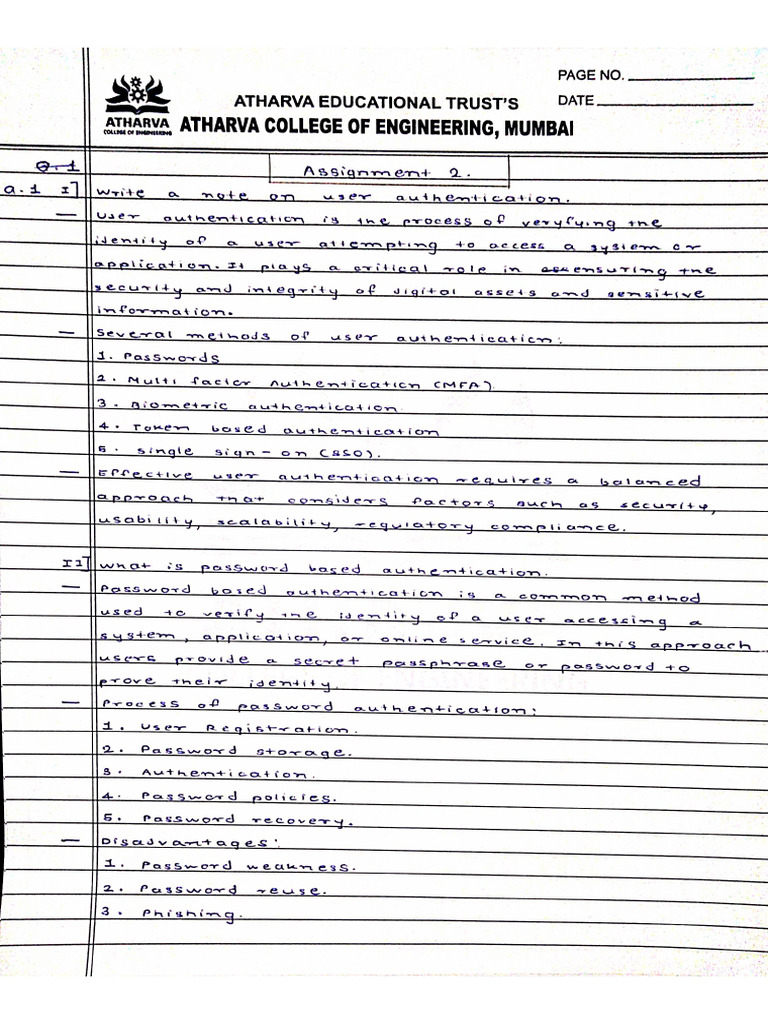 PAGE NO.
DATE
ATHARVA EDUCATIONAL TRUST'S
ATHARVA COLLEGE OF ENGINEERING, MUMBAI
ATHARVA
COLLEGE OF ENGINEERING
Q.1
Assignment 2.
Q.1 I] Write a note on user authentication.
— User authentication is the process of veryfying the
identity of a user attempting to access a system or
application. It plays a critical role in ensuring the
security and integrity of digital assets and sensitive
information.
— Several methods of user authentication:
1. Passwords
2. Multi factor Authentication (MFA)
3. Biometric authentication
4. Token based authentication
5. Single sign-on (SSO).
— Effective user authentication requires a balanced
approach that considers factors such as security,
usability, scalability, regulatory compliance.
II] What is password based authentication.
— Password based authentication is a common method
used to verify the identity of a user accessing a
system, application, or online service. In this approach
users provide a secret passphrase or password to
prove their identity.
— Process of password authentication:
1. User Registration.
2. Password storage.
3. Authentication.
4. Password policies.
5. Password recovery.
— Disadvantages:
1. Password weakness.
2. Password reuse.
3. Phishing.